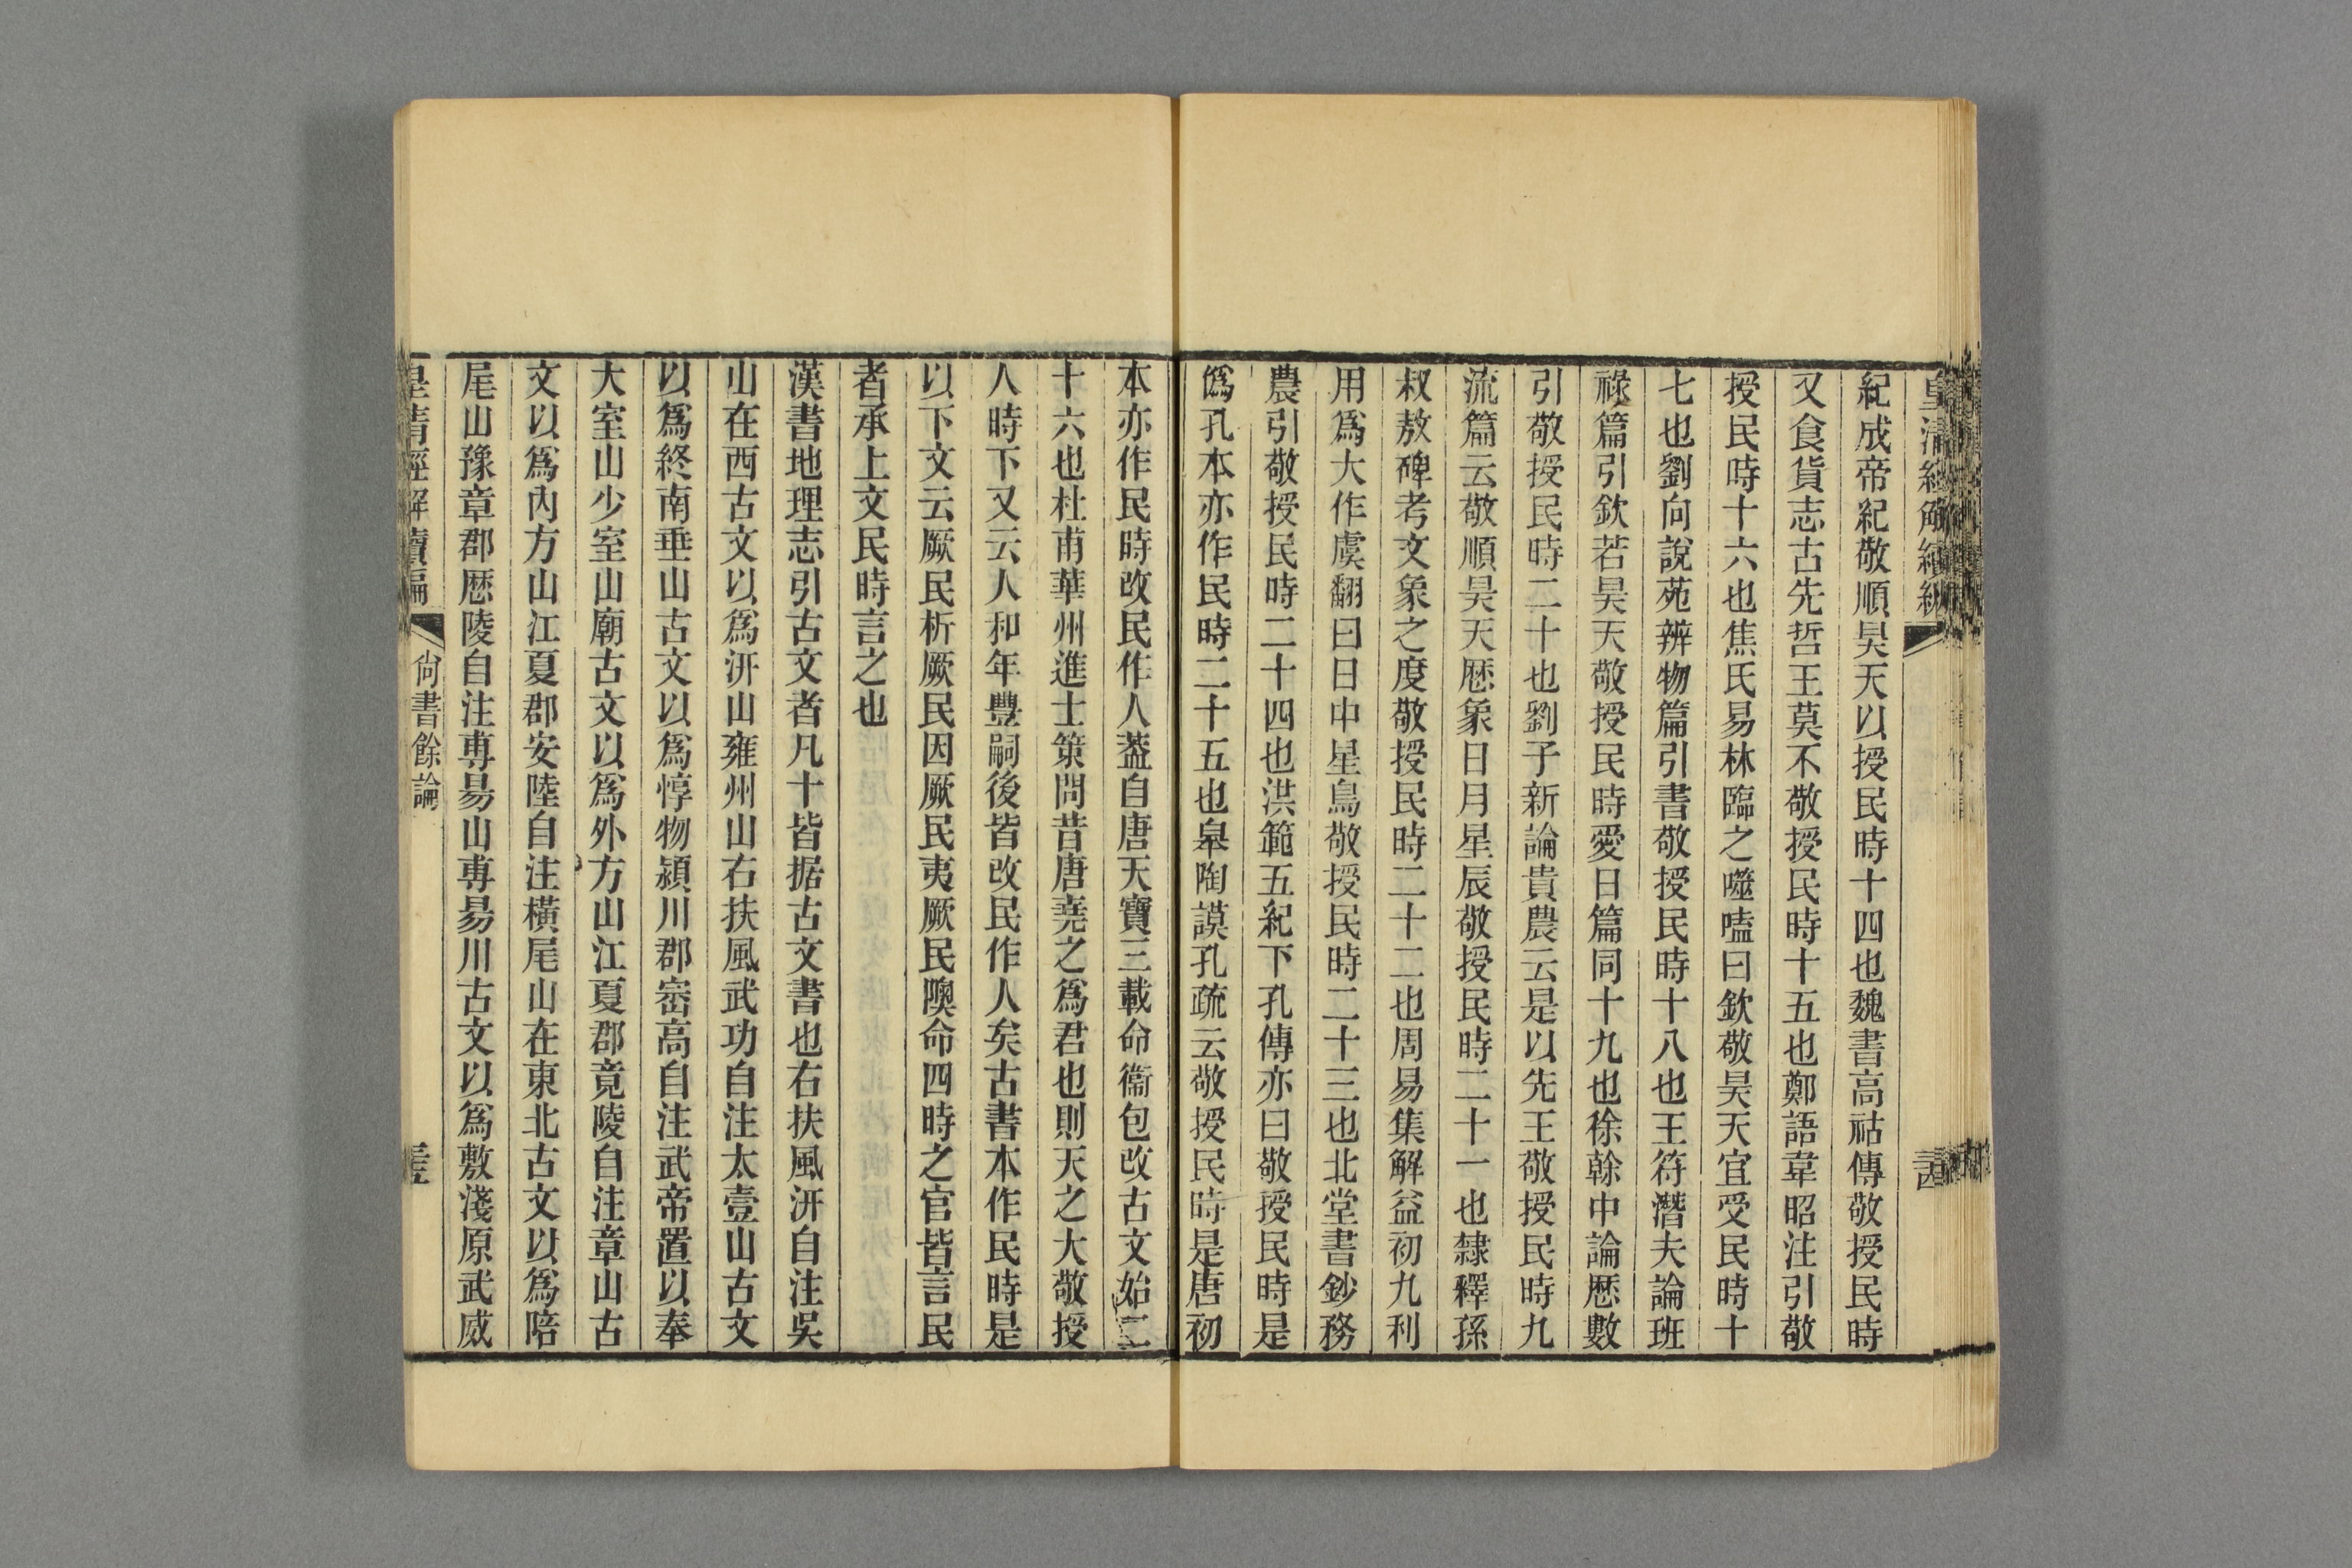 皇清經解續編
紀成帝紀敬順昊天以授民時十四也魏書高祜傳敬授民時
又食貨志古先哲王莫不敬授民時十五也鄭語韋昭注引敬
授民時十六也焦氏易林臨之噬嗑曰欽敬昊天宜受民時十
七也劉向說苑辨物篇引書敬授民時十八也王符潛夫論班
祿篇引欽若昊天敬授民時愛日篇同十九也徐幹中論歷數
引敬授民時二十也劉子新論貴農云是以先王敬授民時九
流篇云敬順昊天歷象日月星辰敬授民時二十一也隸釋孫
叔敖碑考文象之度敬授民時二十二也周易集解益初九利
用爲大作虞翻曰日中星鳥敬授民時二十三也北堂書鈔務
農引敬授民時二十四也洪範五紀下孔傳亦曰敬授民時是
僞孔本亦作民時二十五也皋陶謨孔疏云敬授民時是唐初
本亦作民時改民作人葢自唐天寶三載命衞包改古文始二
十六也杜甫華州進士策問昔唐堯之爲君也則天之大敬授
人時下又云人和年豐嗣後皆改民作人矣古書本作民時是
以下文云厥民析厥民因厥民夷厥民隩命四時之官皆言民
者承上文民時言之也
漢書地理志引古文者凡十皆据古文書也右扶風汧自注吳
山在西古文以爲汧山雍州山右扶風武功自注太壹山古文
以爲終南垂山古文以爲惇物潁川郡崈高自注武帝置以奉
大室山少室山廟古文以爲外方山江夏郡竟陵自注章山古
文以爲內方山江夏郡安陸自注橫尾山在東北古文以爲陪
尾山豫章郡歷陵自注尃昜山尃昜川古文以爲敷淺原武威
皇清經解續編
尙書餘論